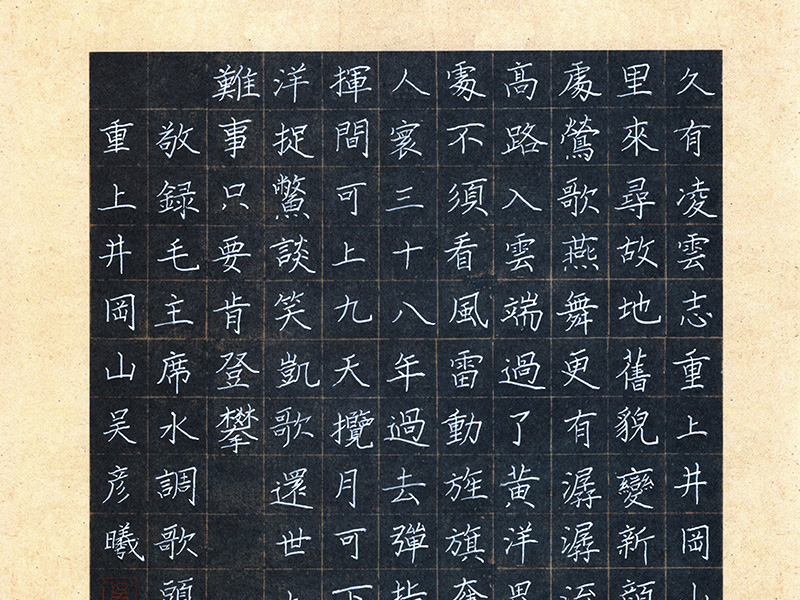 久有凌雲志重上井岡山
里來尋故地舊貌變新顔
處鶯歌燕舞更有潺潺流
高路入雲端過了黃洋界
處不須看風雷動旌旗奮
人寰三十八年過去彈指
揮間可上九天攬月可下
洋捉鱉談笑凱歌還世
難事只要肯登攀
敬録毛主席水調歌頭
重上井岡山吴彦曦